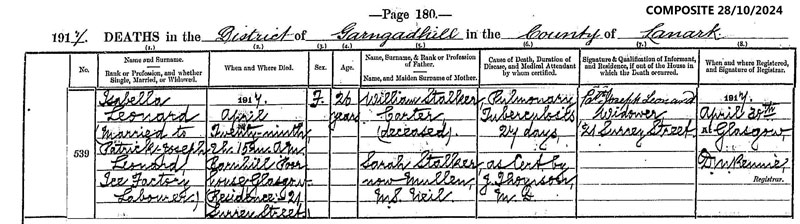 —Page 180.—
COMPOSITE 28/10/2024
1917. DEATHS in the District of Garngadhill in the County of Lanark
(1.) (2.) (3.) (4.) (5.) (6.) (7.) (8.)
No.
Name and Surname.
Rank or Profession, and whether
Single, Married, or Widowed.
When and Where Died.
Sex.
Age.
Name, Surname, & Rank or Profession
of Father.
Name, and Maiden Surname of Mother.
Cause of Death, Duration of
Disease, and Medical Attendant
by whom certified.
Signature & Qualification of Informant,
and Residence, if out of the House in
which the Death occurred.
When and where Registered,
and Signature of Registrar.
539
Isabella
Leonard
(Married to
Patrick Joseph
Leonard
Ice Factory
Labourer)
1917,
April
Twenty-ninth
2h. 15m. A.M.
Barnhill Poor
house Glasgow
Residence: 21
Surrey Street)
F.
26
years
William Stalker
Carter
(deceased)
Sarah Stalker
now Mullen,
M.S. Neil
Pulmonary
Tuberculosis
24 days,
as Cert by
J. Thomson,
M. D.
Joseph Leonard
Widower
21 Surrey Street
1917,
April
At Glasgow
Registrar.